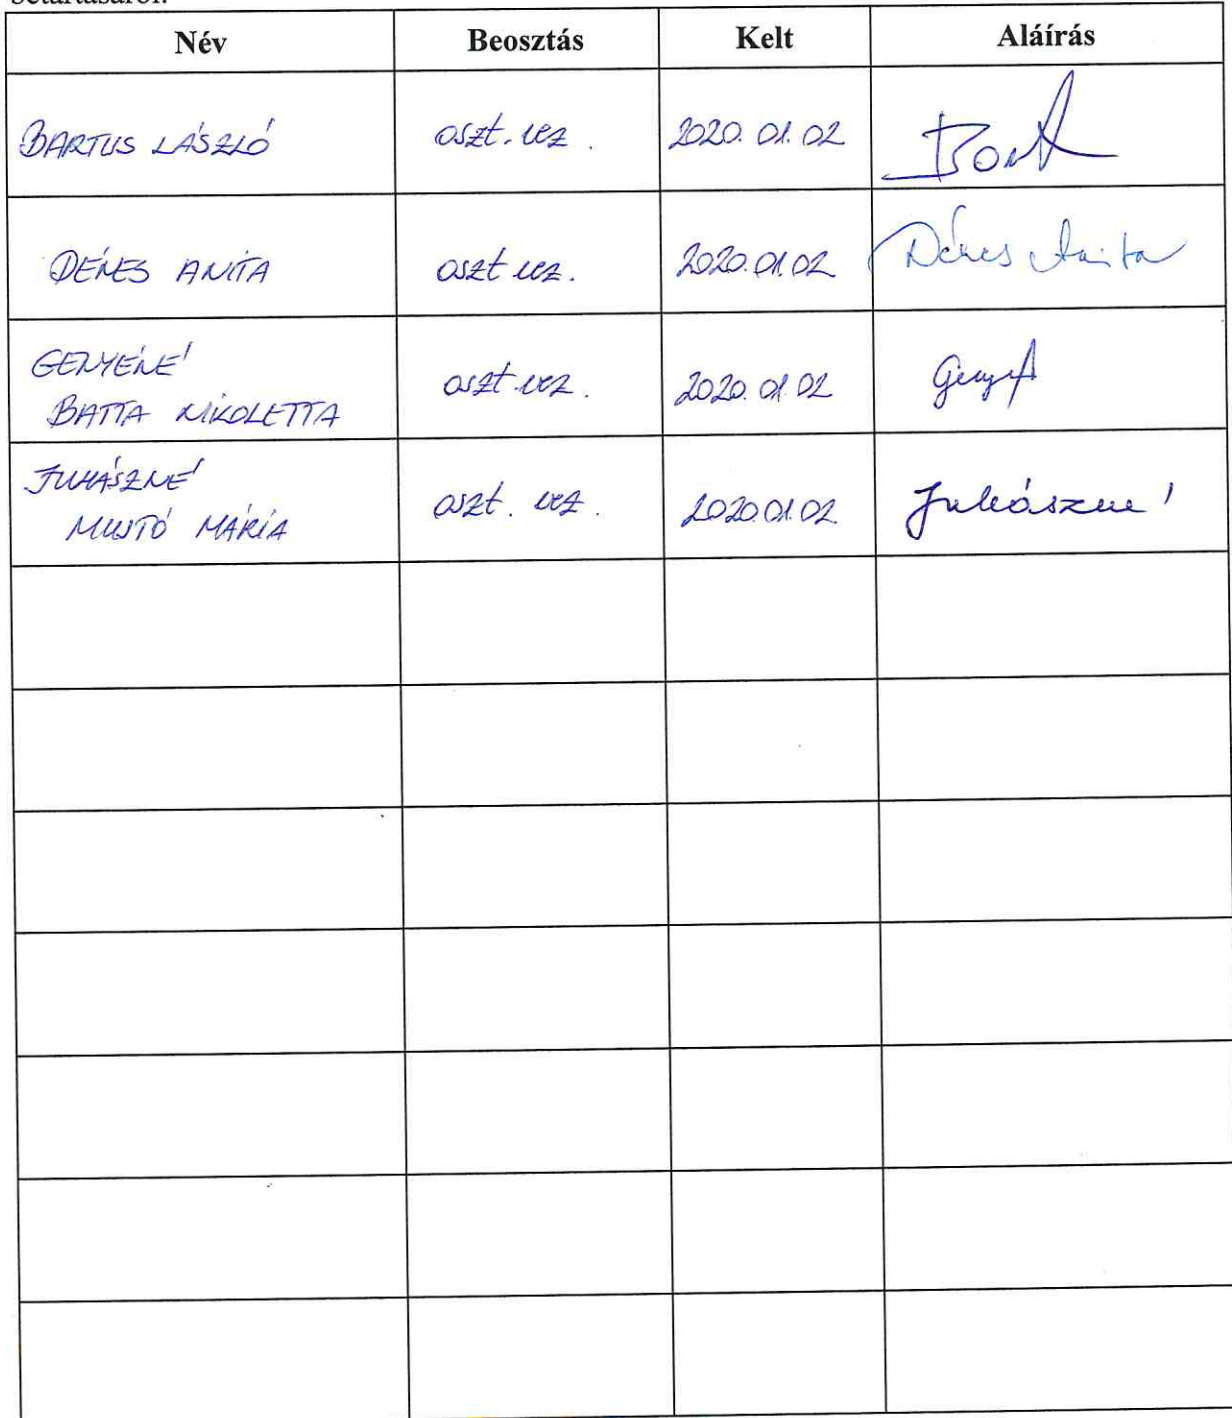 betartásáról.
Név Beosztás Kelt Aláírás
BARTUS LÁSZLÓ oszt. vez. 2020. 01. 02
DÉNES ANITA oszt vez. 2020.01.02 Dénes Anita
GENYÉNÉ
BATTA NIKOLETTA oszt. vez. 2020. 01. 02
JUHÁSZNÉ
MÁRIA oszt. vez. 2020.01.02. Juhászné